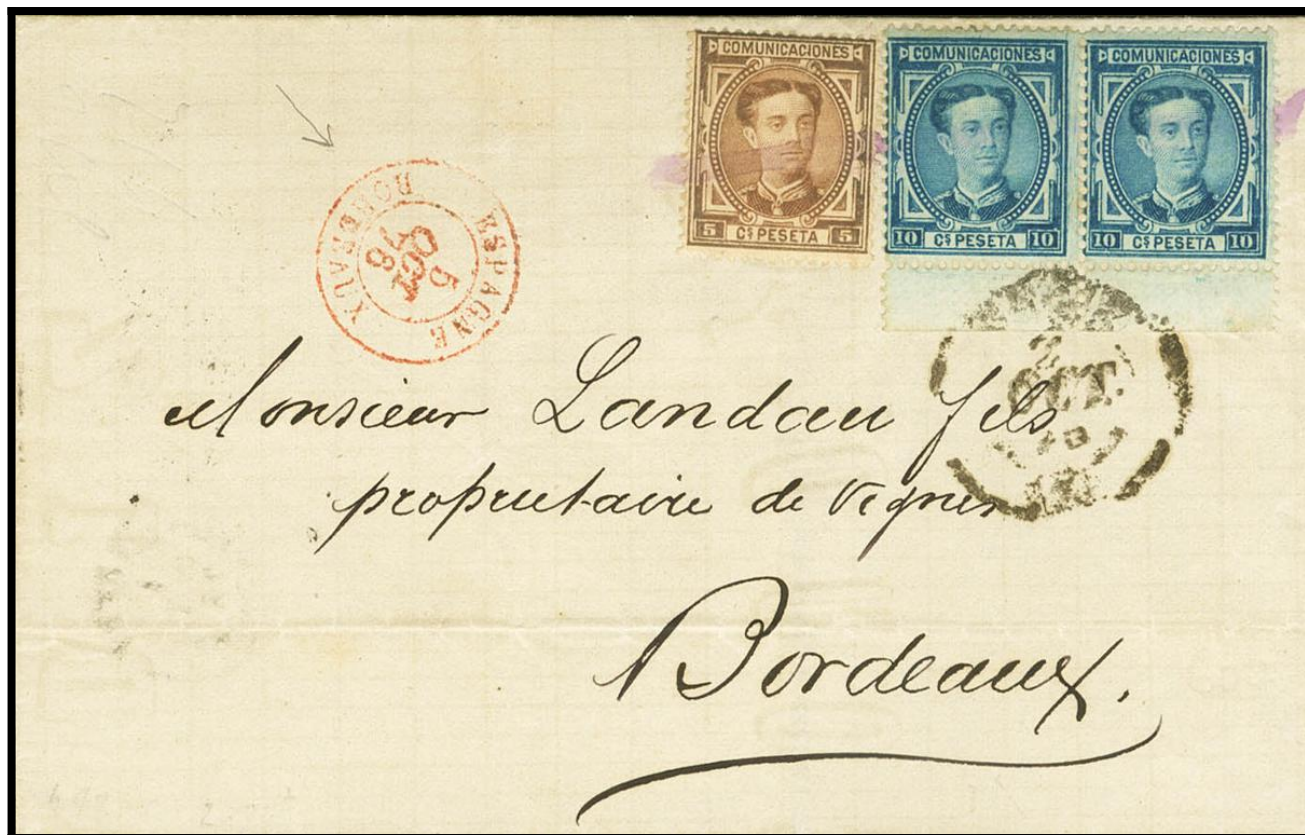 COMUNICACIONES
5 CS PESETA 5
COMUNICACIONES
10 CS PESETA 10
COMUNICACIONES
10 CS PESETA 10
ESPAGNE
BORDEAUX
5
OCT
2
OCT.
Monsieur Landau fils
proprietaire de vignes
Bordeaux.